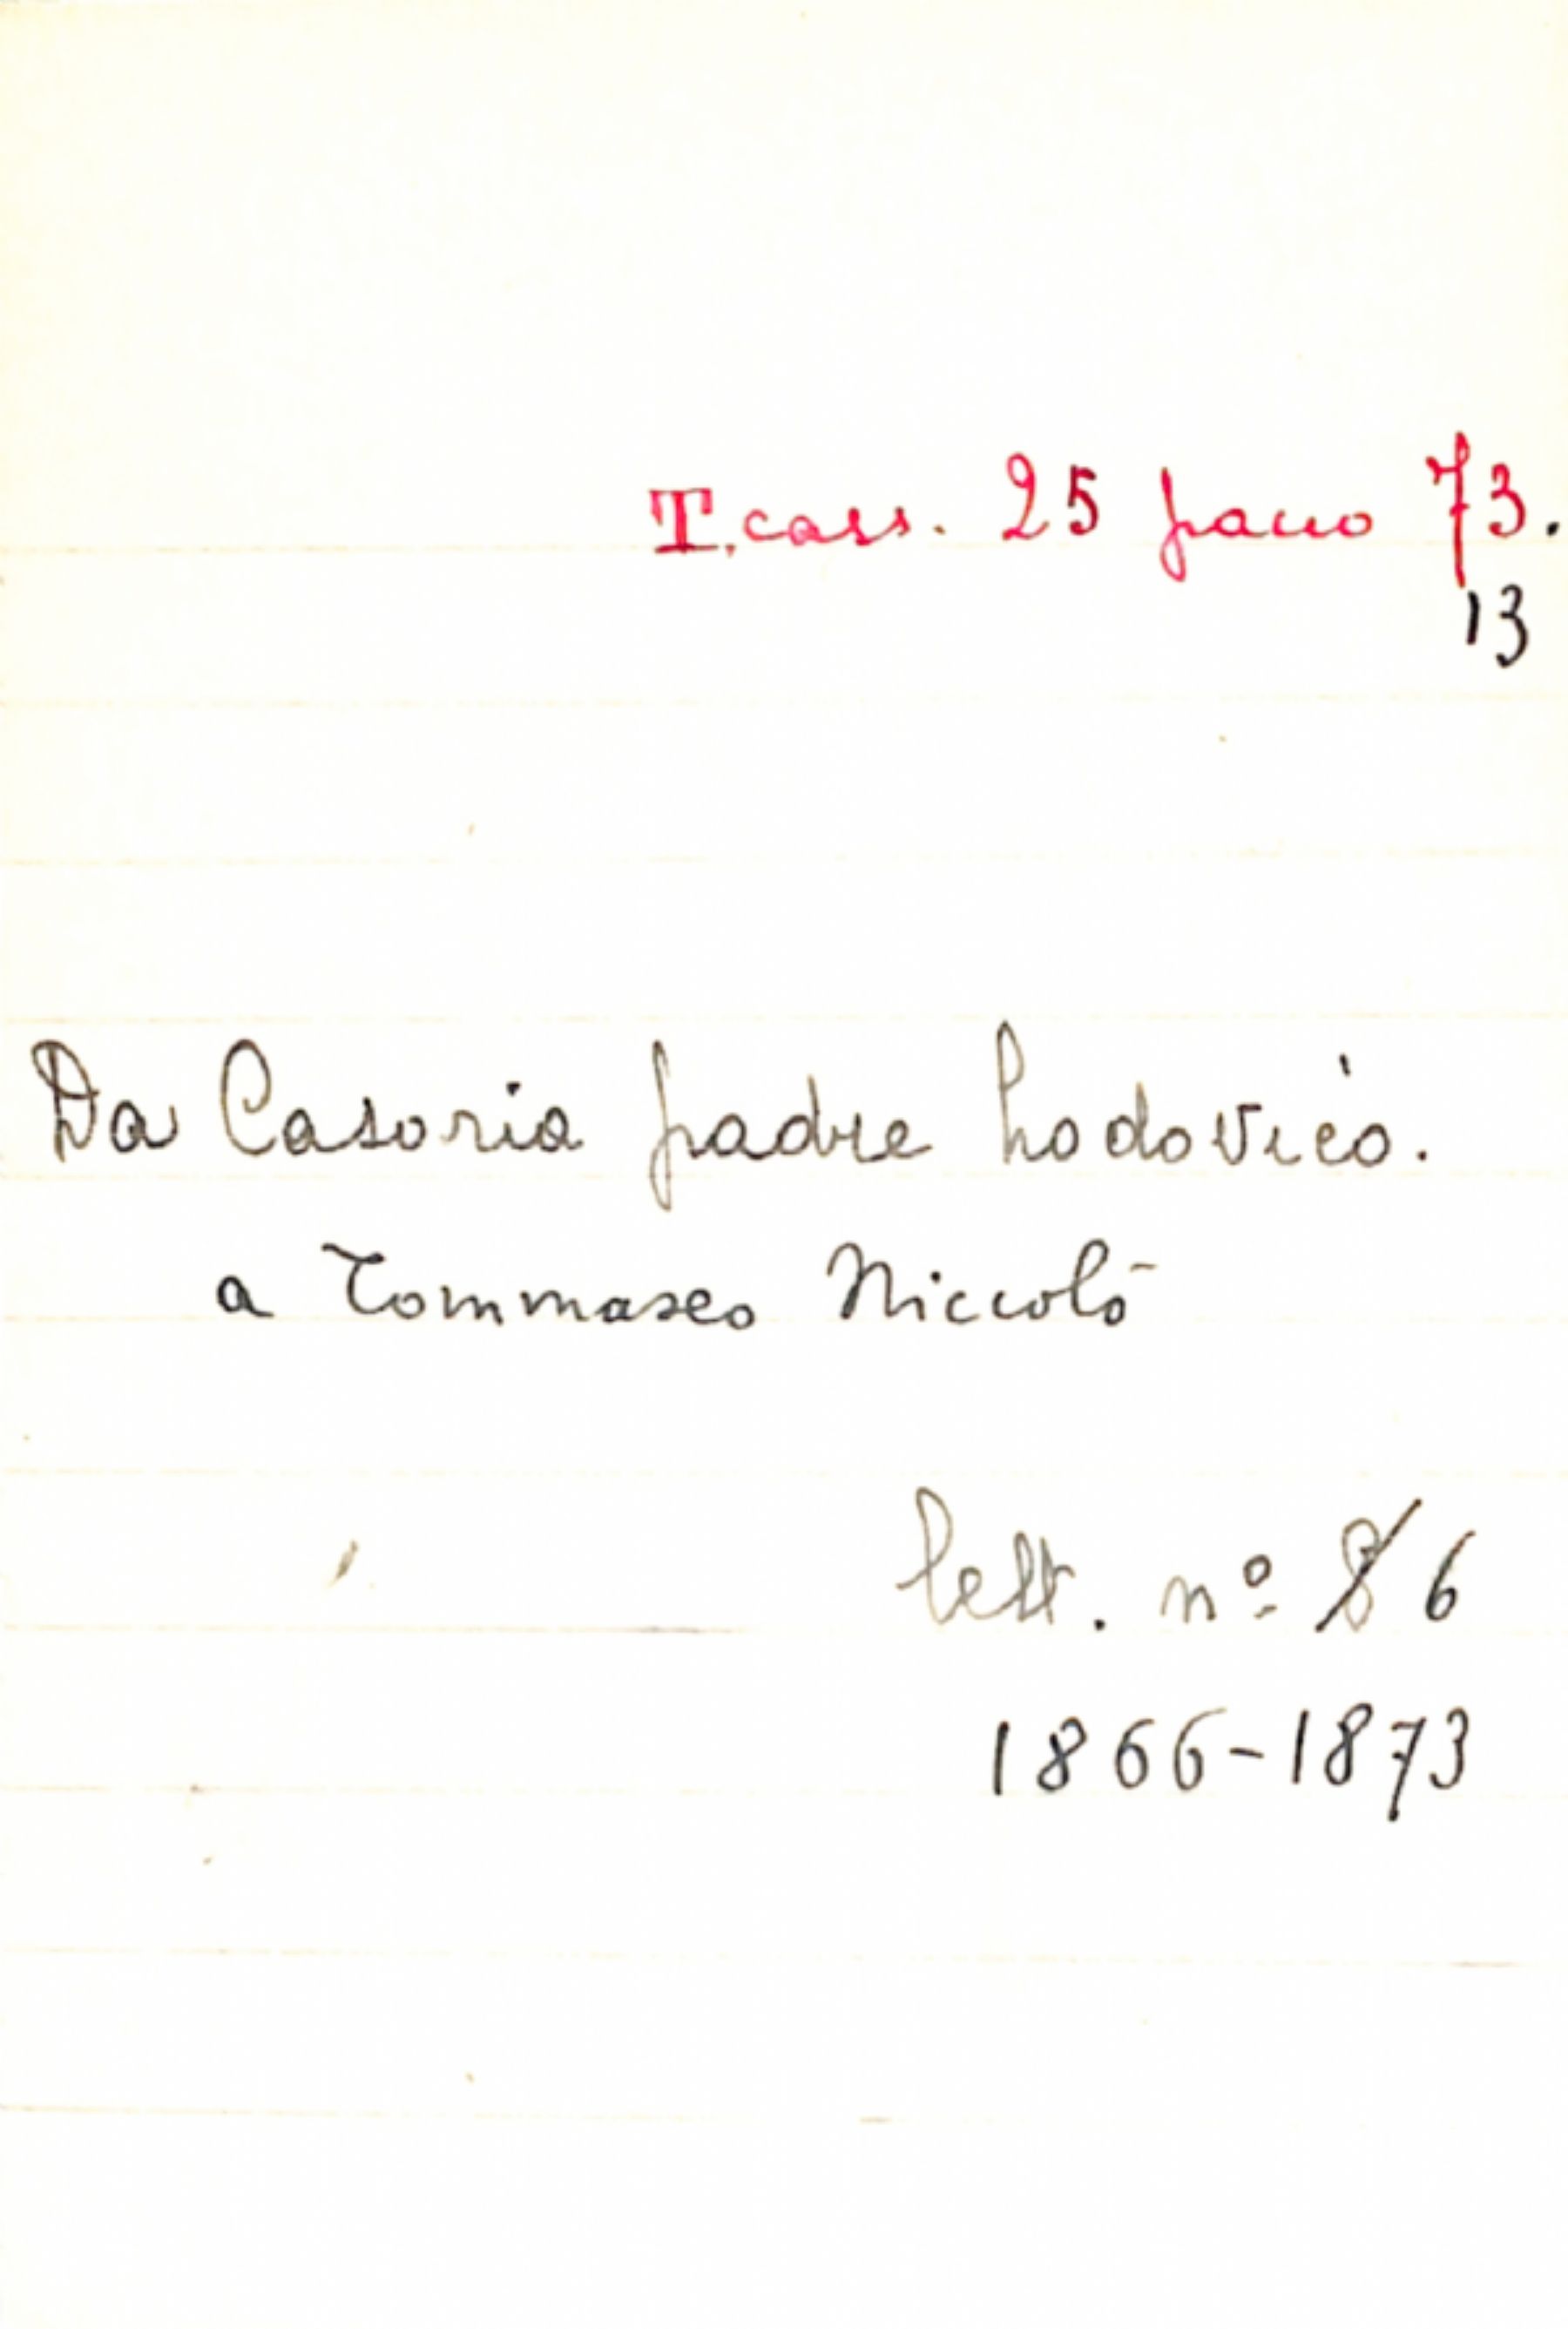 T. cass. 25 pacco 73.
13
Da Casoria padre Lodovico.
a Tommaseo Niccolò
lett. nº 8 6
1866-1873